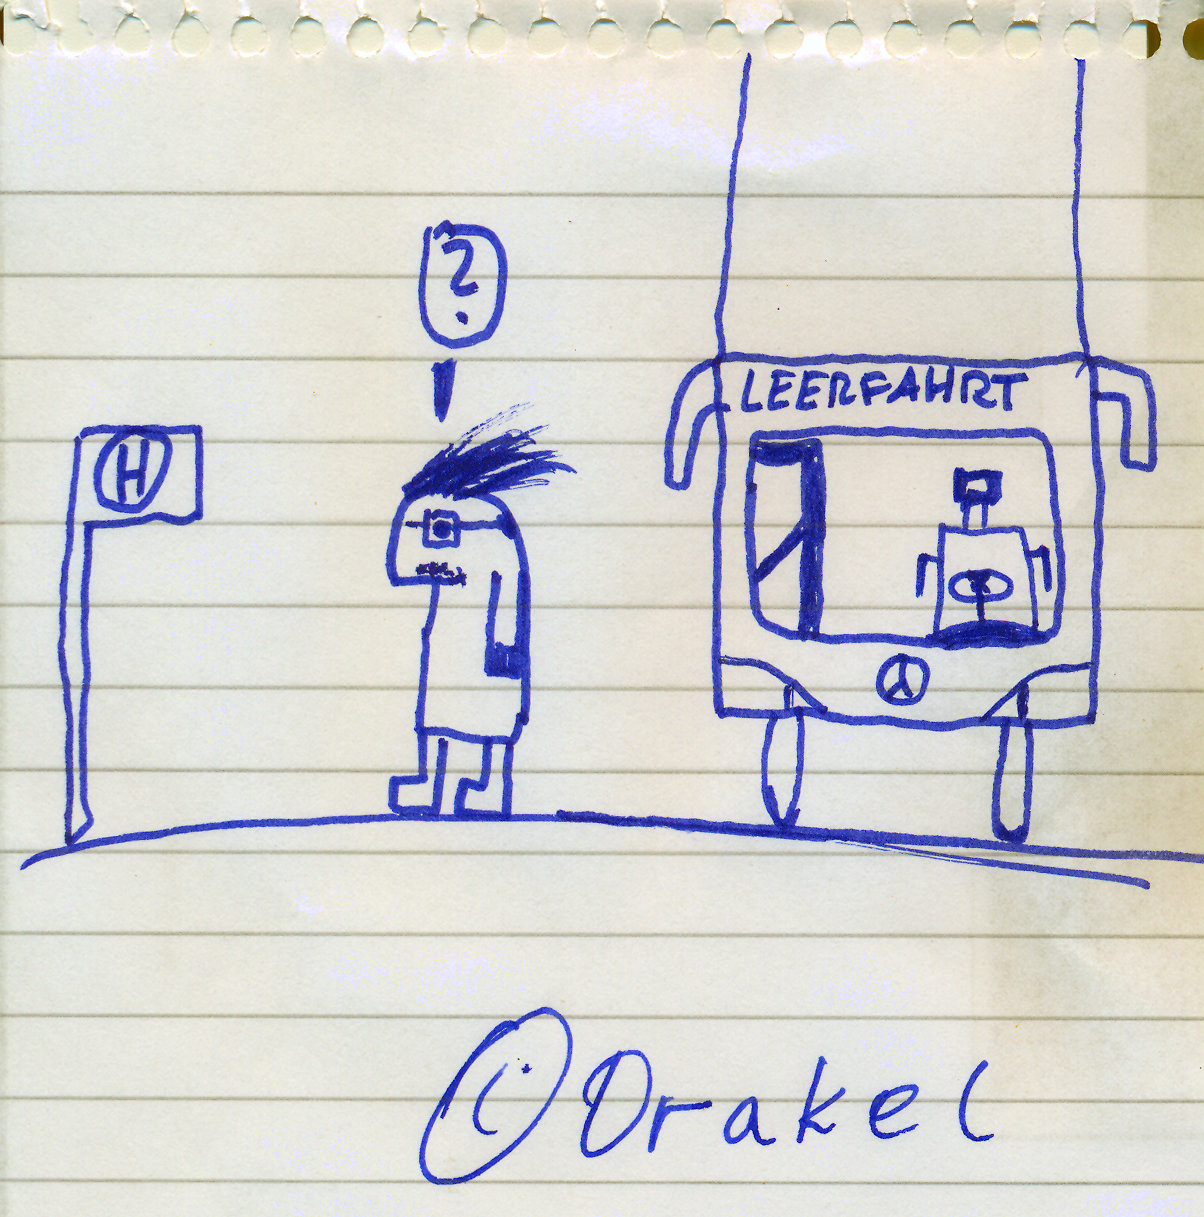 ?
H
LEERFAHRT
© Orakel